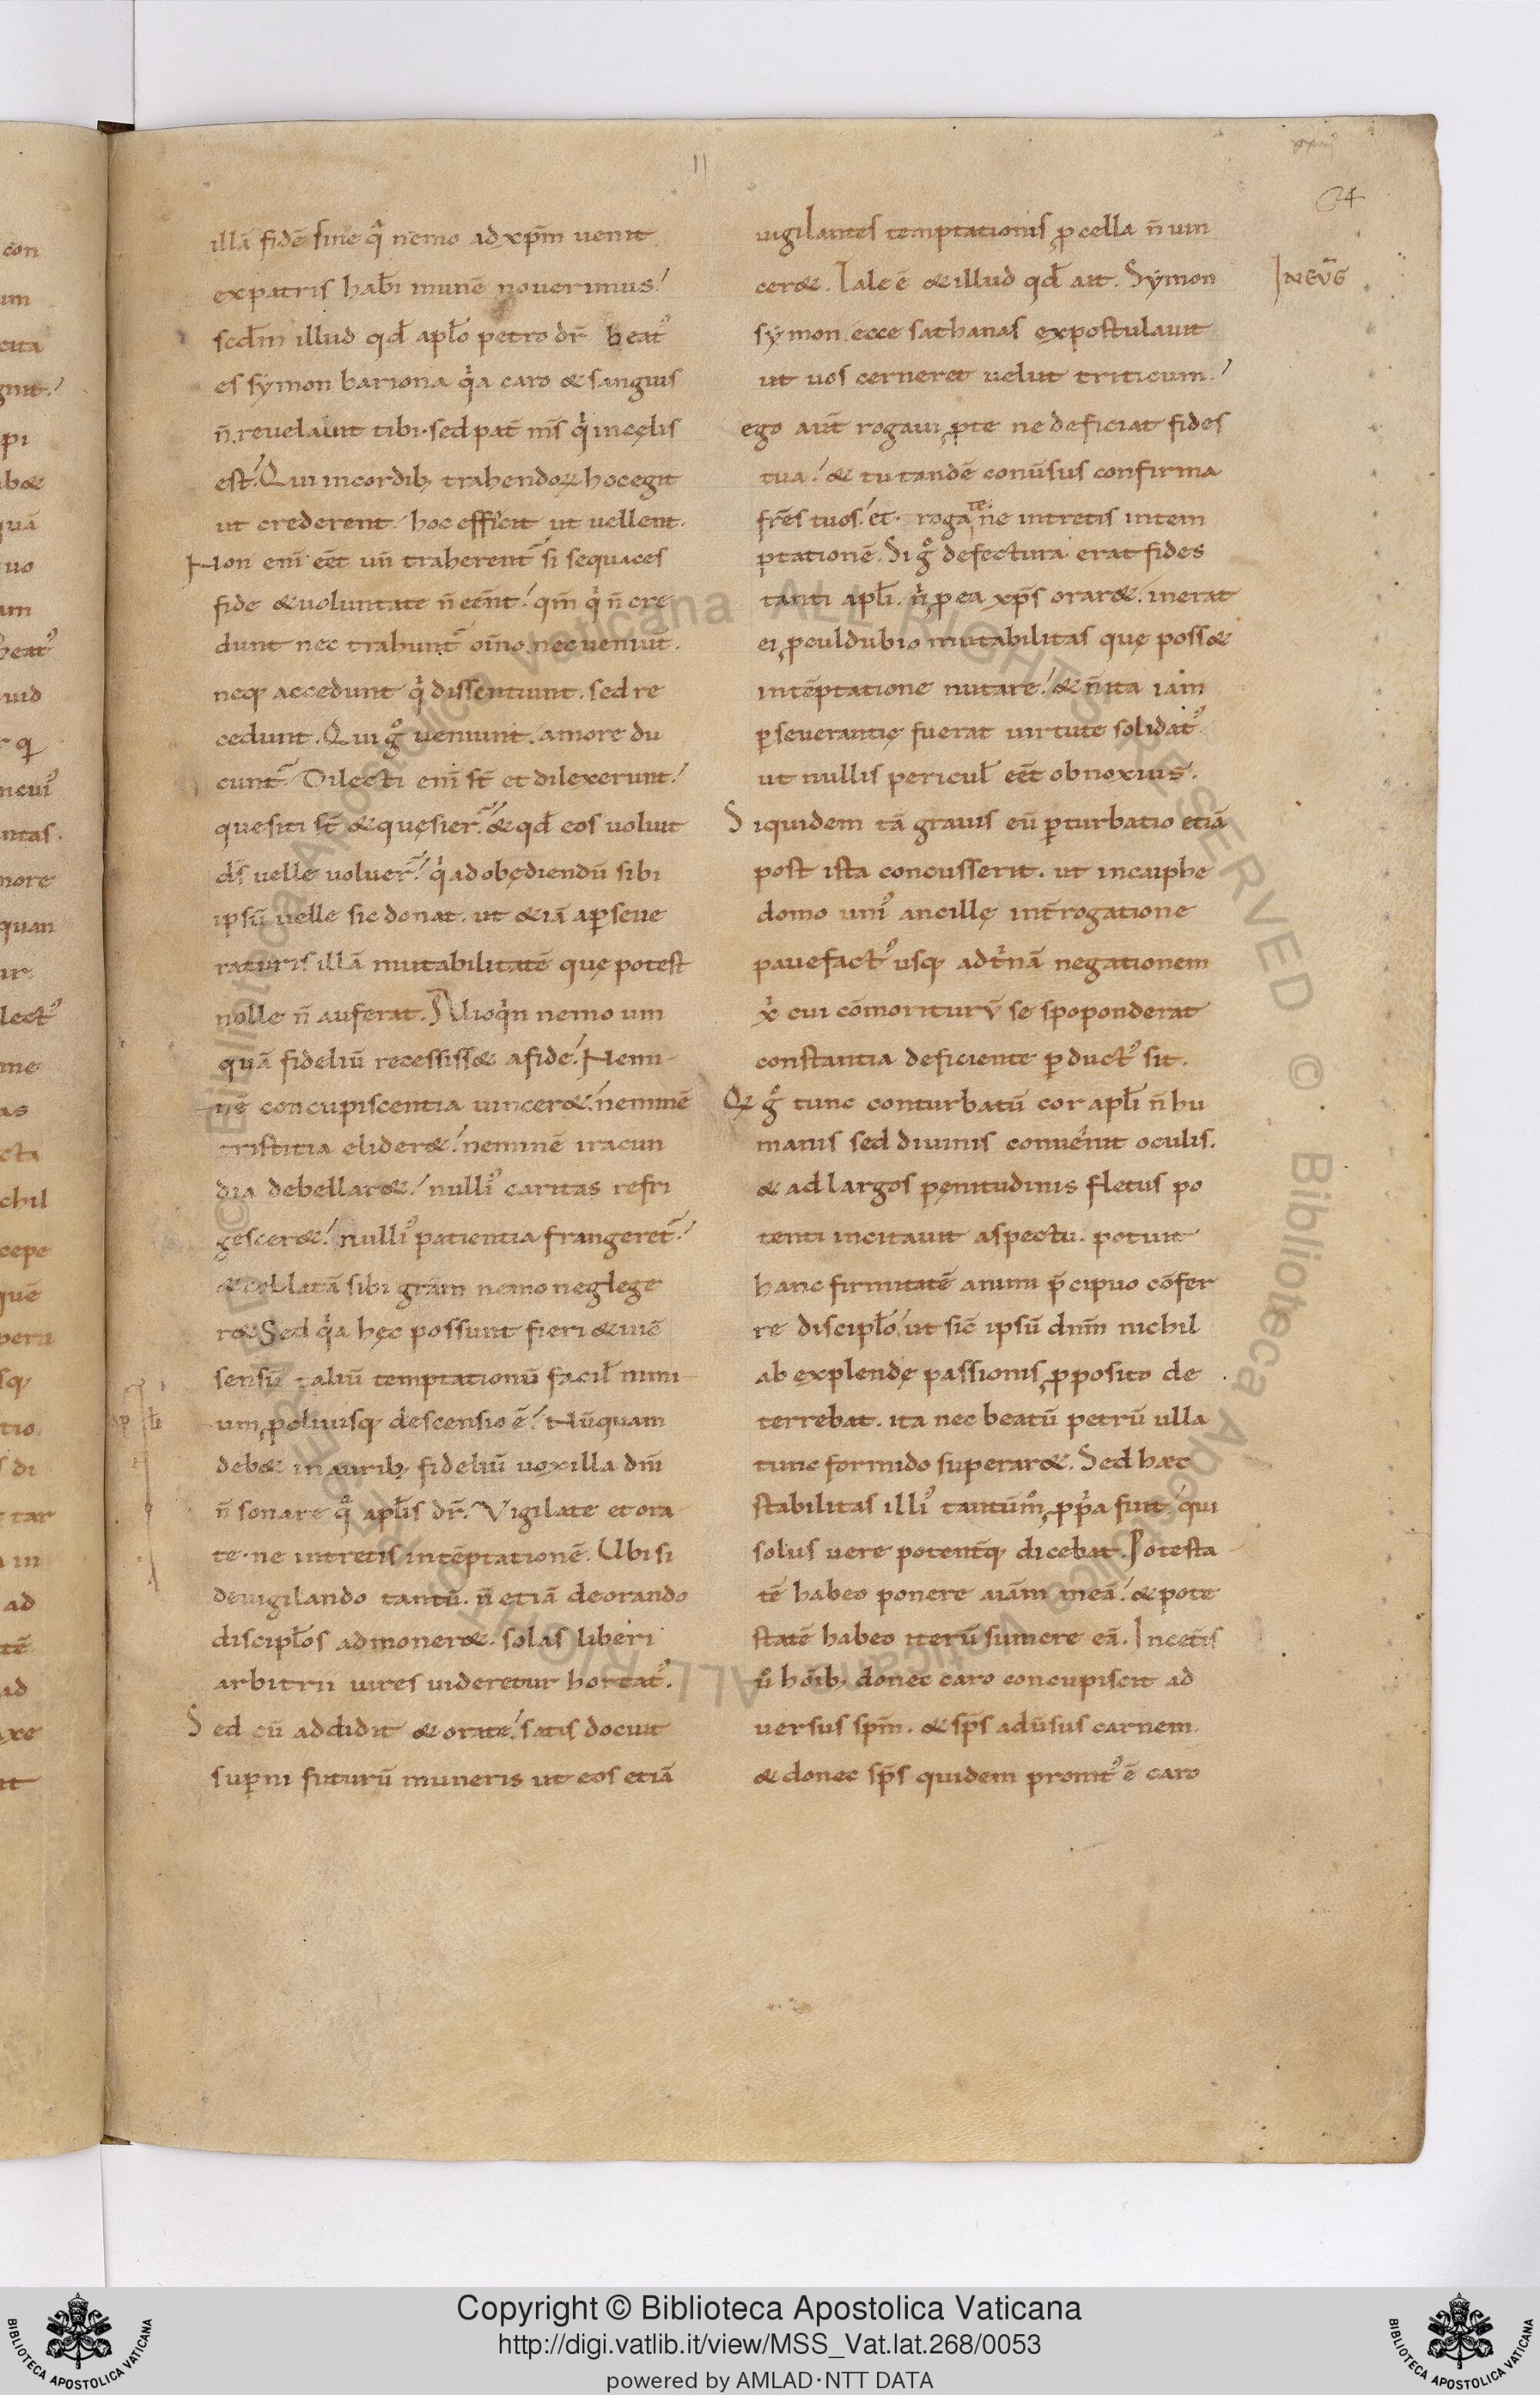 xxiiij
24
II
illā fidē sine q̇ nemo ad xpm̄ uenit
ex patris hab̄i munē nouerimus.
scd̄m illud qd̄ apl̄o petro dr̄ beat᾽
es sẏmon bariona q̇a caro & sanguis
n̄ reuelauit tibi. sed pat̄ m̄s q̇ in cęlis
est. Qui in cordib; trahendoꝝ hoc egit
ut crederent. hoc efficit ut uellent.
Non eni̅ eēt un̄ traherent᷑ si sequaces
fide & uoluntate n̄ eēnt. qm̄ q̇ n̄ cre
dunt nec trahunt᷑ oīno. nec ueniūt.
neq; accedunt q̇ dissentiunt. sed re
cedunt. Qui gͦ ueniunt. amore du
cunt᷑. Dilecti eni̅ st̄ et dilexerunt.
quesiti st̄ & quęsier̄. & qd̄ eos uoluit
dś uelle uoluer̄. q̇ ad obędiendū sibi
ipsū uelle sic donat. ut & iā a pseue
raturis illā mutabilitatē quę potest
nolle n̄ auferat. Alioq̇n nemo um
quā fideliū recessiss& a fide. Nemi
nē concupiscentia uincer&. neminē
tristitia elider&. neminē iracun
dia debellar&. nulli᾽ caritas refri
gescer&. nulli᾽ patientia frangeret᷑.
& collatā sibi grām nemo neglege
r& Sed q̇a hęc possunt fieri & inē
sensū taliū temptationū facil̄ nimi
um ꝓcliuisq; descensio ē. Nūquam
deb& in aurib; fideliū uox illa dn̄i
n̄ sonare qͣ apl̄is dr̄. Vigilate et ora
te. ne intretis in tēptationē. Ubi si
de uigilando tantū. n̄ etiā de orando
discipl̄os admoner&. solas liberi
arbitrii uires uideretur hortat᾽.
Sed cū addidit & orate. satis docuit
supni futurū muneris ut eos etiā
uigilantes temptationis ꝓcella n̄ uin
cer&. Tale ē & illud qd̄ ait. Sẏmon
sẏmon ecce sathanas expostulauit
ut uos cerneret uelut triticum.
ego aut̄ rogaui ꝓ te ne deficiat fides
tua. & tu tandē conūsus confirma
fr̄es tuos. et. roga te ne intretis in tem
ptationē. Si gͦ defectura erat fides
tanti apl̄i. n̄ ꝓ ea xp̄s orar&. inerat
ei ꝓculdubio mutabilitas quę poss&
in tēptatione nutare. & n̄ ita iam
pseuerantię fuerat uirtute solidat᾽
ut nullis pericul̄ eēt obnoxius.
Siquidem tā grauis eū pturbatio etiā
post ista concusserit. ut in caiphe
domo uni᾽ ancillę int̄rogatione
pauefact᾽ usq; ad t̓nā negationem
x̓ cui cōmoriturū se spoponderat
constantia deficiente pduct᾽ sit.
Q& gͦ tunc conturbatū cor apl̄i n̄ hu
manis sed diuinis conuenit oculis.
& ad largos penitudinis fletus po
tenti incitauit aspectu. potuit
hanc firmitatē animi p̄cipuo cōfer
re discipl̄o. ut sic̄ ipsū dnm̄ nichil
ab explendę passionis ꝓposito de
terrebat. ita nec beatū petrū ulla
tunc formido superar&. Sed hæc
stabilitas illi᾽ tantūmͦ ꝓp̓a fuit. qui
solus uere potent̄q; dicebat. Potesta
tē habeo ponere aīam meā. & pote
statē habeo iterū sumere eā. In cet̄is
uͦ hōib; donec caro concupiscit ad
uersus spm̄. & sp̄s adūsus carnem
& donec sp̄s quidem promt᾽ ē caro
IN EVḠ
Copyright © Biblioteca Apostolica Vaticana
http://digi.vatlib.it/view/MSS_Vat.lat.268/0053
powered by AMLAD·NTT DATA